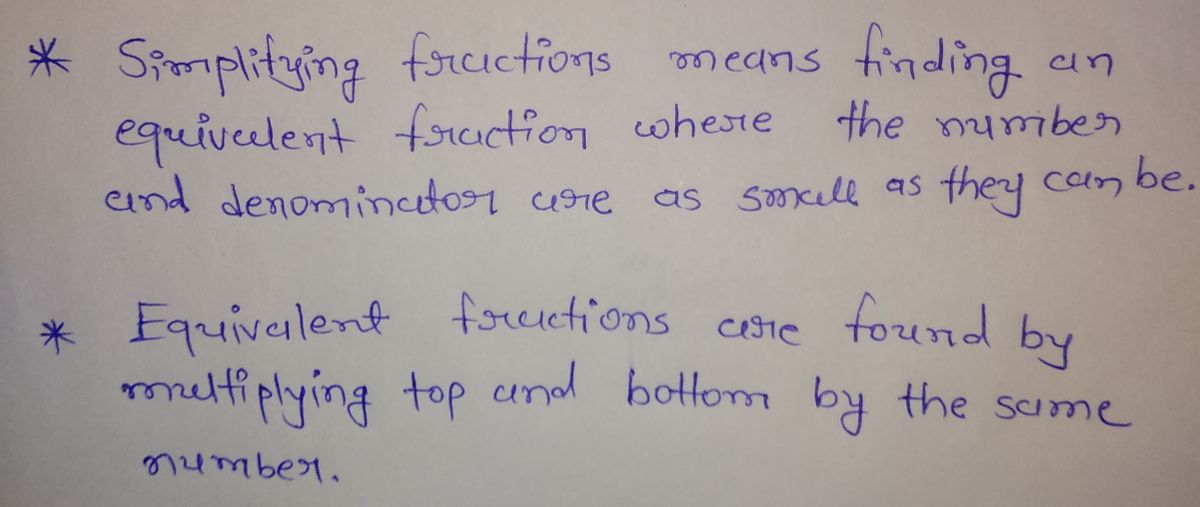 * Simplifying fractions means finding an
equivalent fraction where the number
and denominator are as small as they can be.
* Equivalent fractions are found by
multiplying top and bottom by the same
number.